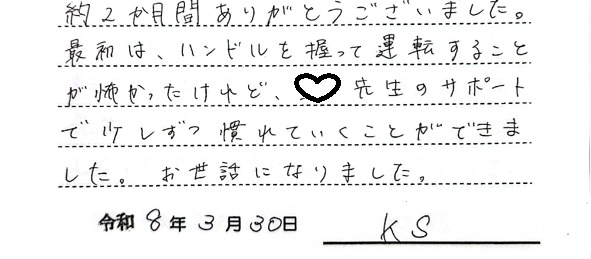 約2か月間ありがとうございました。
最初は、ハンドルを握って運転すること
が怖かったけれど、 先生のサポート
で少しずつ慣れていくことができま
した。 お世話になりました。
令和 8年 3月 30日 KS